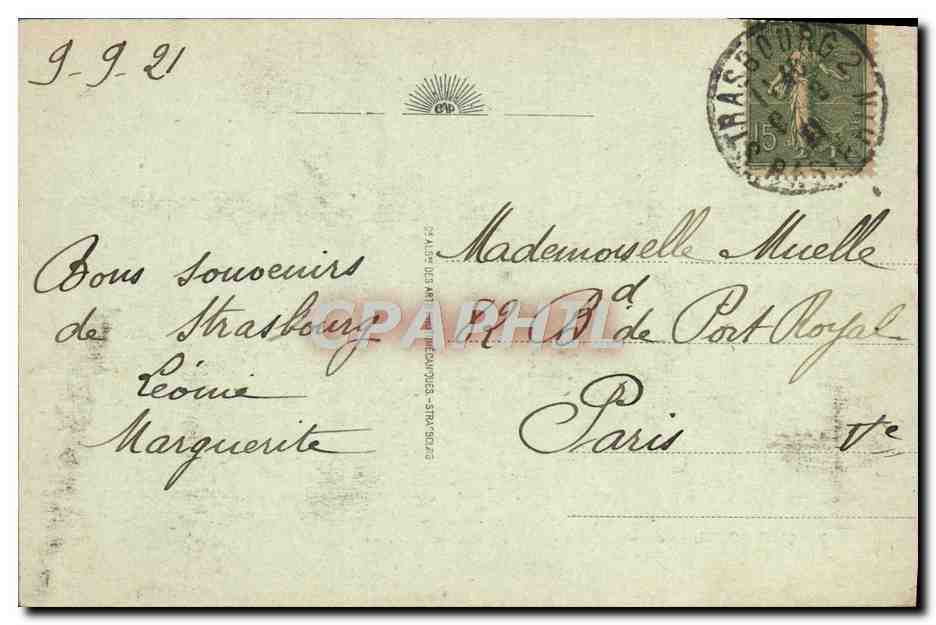 9-9-21
CAP
STRASBOURG 2
15
Bons souvenirs
de Strasbourg
Léonie
Marguerite
Cie ALSne DES ARTS MÉCANIQUES.-STRASBOURG
Mademoiselle Muelle
Bd de Port Royal
Paris Ve
CPAPHIL